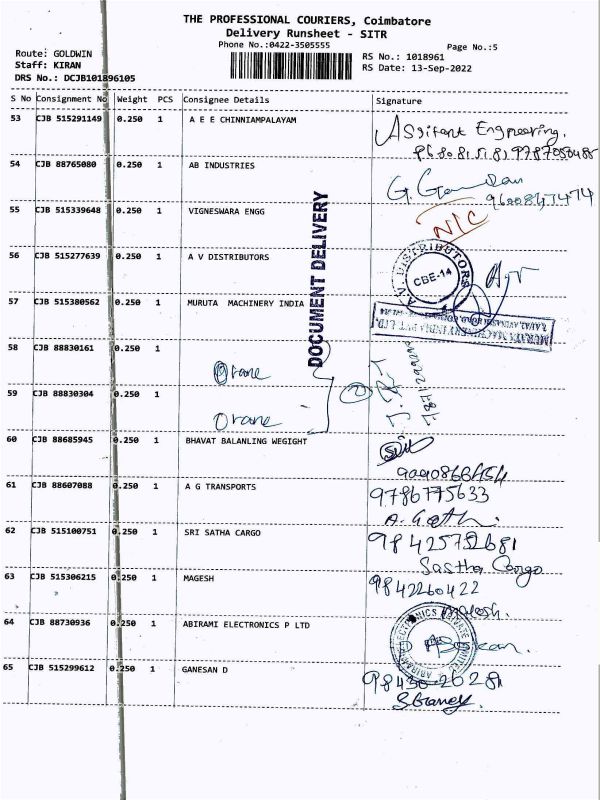 THE PROFESSIONAL COURIERS, Coimbatore
Delivery Runsheet - SITR
Phone No.:0422-3505555
Page No.:5
Route: GOLDWIN
Staff: KIRAN
DRS No.: DCJB101896105
RS No.: 1018961
RS Date: 13-Sep-2022
S No Consignment No Weight PCS Consignee Details Signature
53 CJB 515291149 0.250 1 A E E CHINNIAMPALAYAM
Assitant Engneering.
54 CJB 88765080 0.250 1 AB INDUSTRIES
55 CJB 515339648 0.250 1 VIGNESWARA ENGG
N/C
56 CJB 515277639 0.250 1 A V DISTRIBUTORS
A.V. DISTRIBUTORS
CBE-14
57 CJB 515380562 0.250 1 MURUTA MACHINERY INDIA
DOCUMENT DELIVERY
58 CJB 88830161 0.250 1
Orane
59 CJB 88830304 0.250 1
Orane
60 CJB 88685945 0.250 1 BHAVAT BALANLING WEGIGHT
61 CJB 88607088 0.250 1 A G TRANSPORTS
9786775633
62 CJB 515100751 0.250 1 SRI SATHA CARGO
Sastha Cargo
63 CJB 515306215 0.250 1 MAGESH
9842260422
64 CJB 88730936 0.250 1 ABIRAMI ELECTRONICS P LTD
65 CJB 515299612 0.250 1 GANESAN D